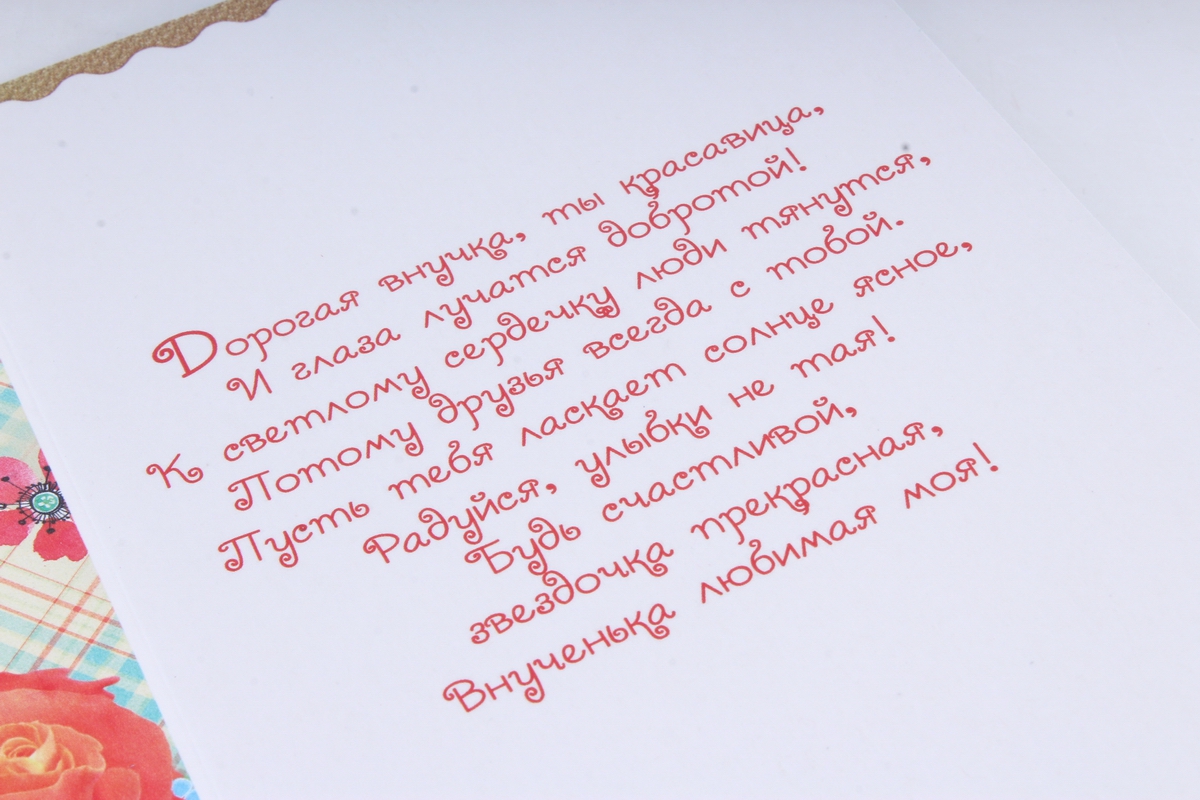 Дорогая внучка, ты красавица,
И глаза лучатся добротой!
К светлому сердечку люди тянутся,
Потому друзья всегда с тобой.
Пусть тебя ласкает солнце ясное,
Радуйся, улыбки не тая!
Будь счастливой,
звездочка прекрасная,
Внученька любимая моя!